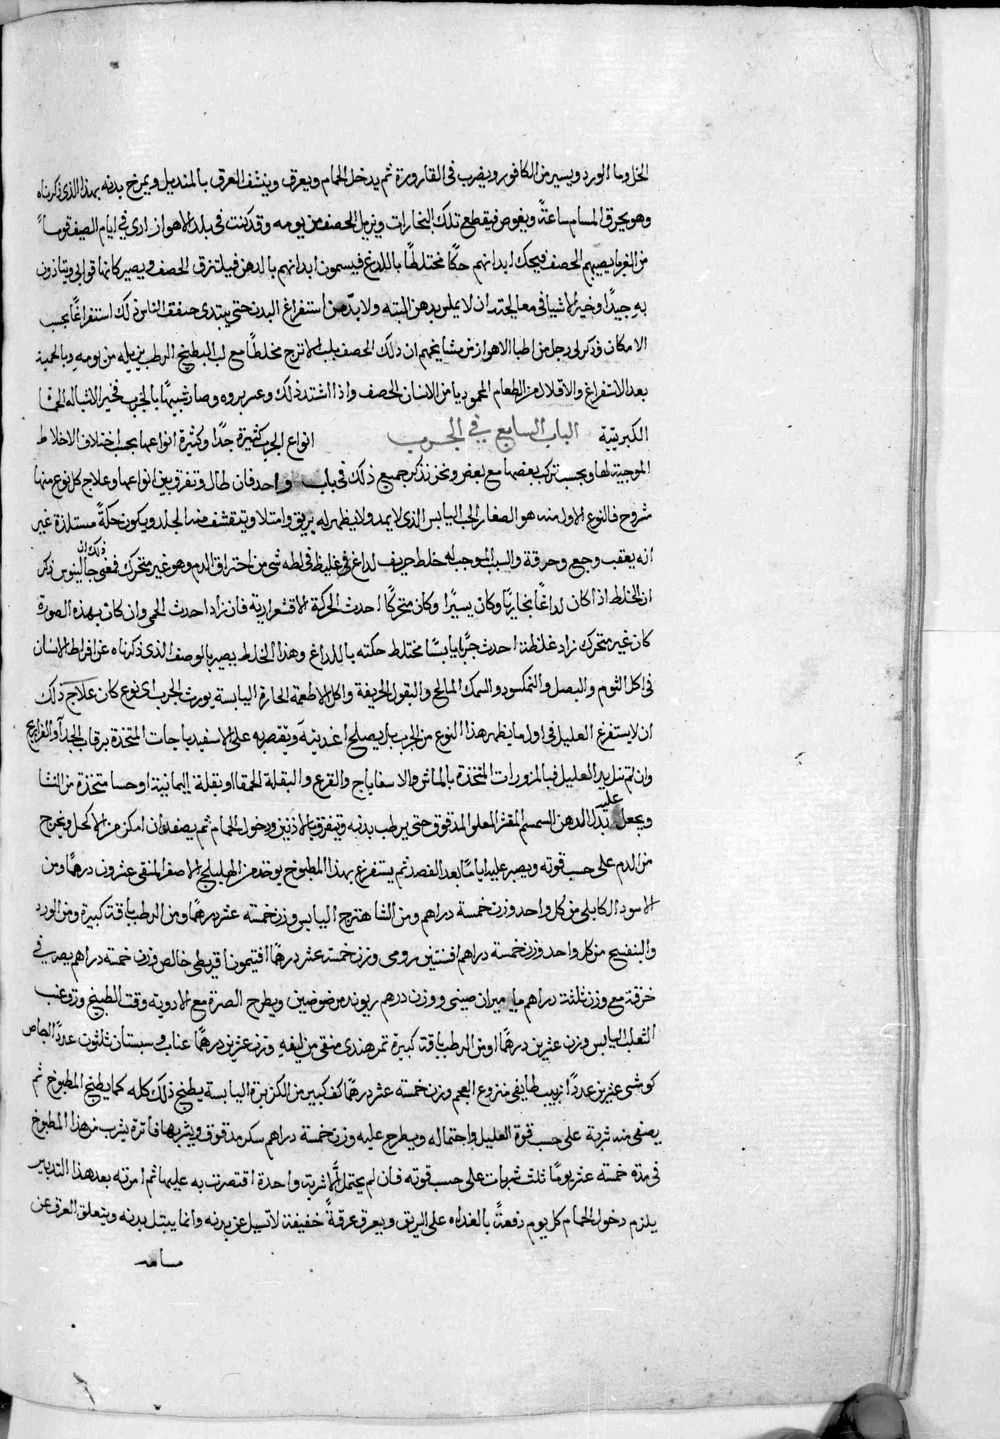 الخل وما الورد ويسير من الكافور ويضرب في القارورة ثم يدخل الحمام ويعرق وينشف العرق بالمنديل ويمرخ بدنه بهذا الذي ذكرناه
وهو يحرق المسام ساعةً ويغوص فيقطع تلك البخارات ويزيل الحصف من يومه وقد كنت في بلد الاهواز ارى في ايام الصيف قوماً
من الغربا يصيبهم الحصف فيحك ابدانهم حكًا مختلطًا باللدغ فيسمون ابدانهم بالدهن فيلتزق الحصف ويصير كانها قوابى ويتاذون
به جيدًا وخير الاشيا في معالجته ان لا يملس بدهن البته ولا بد من استفراغ البدن حتى يبتدى استفراغًا بحسب
الامكان وذكر لى رجل من اطبا الاهواز من مشايخهم ان ذلك الحصف بلب الاترج مخلطًا مع لب البطيخ الرطب يزيله من يومه وبالحمية
بعد الاستفراغ والاقلال من الطعام المحمود يامن الانسان الحصف واذا اشتد ذلك وعسر بروه وصار شبيهًا بالجرب فخير الاشيا له الحما
الكبريتية الباب السابع في الجرب انواع الجرب كثيرة جدًا وكثرة انواعها بحسب اختلاف الاخلاط
الموجبة لها وبحسب تركب بعضها مع بعض ونحن نذكر جميع ذلك في باب واحد فان طال ونفرق بين انواعها وعلاج كل نوع منها
مشروح فالنوع الاول منه هو الصغار الحب اليابس الذى لا يمد ولا يظهر له بريق وامتلا ويتقشف منه الجلد ويكون حكةً مستلذة غير
انه يعقب وجع وحرقة والسبب الموجب له خلط حريف لداغ في غليظ خالطه شى من احتراق الدم وهو غير متحرك فمعنى ذلك ان جالينوس ذكر
ان الخلط اذا كان لداغًا بخاريًا وكان يسيرًا وكان متحركًا احدث الحركة الاقشعرارية فان زاد احدث الحمى وان كان بهذه الصورة
كان غير متحرك زاد غلظته احدث جربًا يابسًا مختلط حكته باللداغ وهذا الخلط يصير بالوصف الذى ذكرناه عن افراط الانسان
في اكل الثوم والبصل والنمكسود والسمك المالح والبقول الحريفة واكل الاطعمة الحارة اليابسة يورث الجرب اى نوع كان علاج ذلك
ان لا يستفرغ العليل في اول ما يظهر هذا النوع من الجرب بل يصلح اغذيته ويقتصر به على الاسفيدباجات المتخذة برقاب الجدآ والفراريج
وان لم العليل فبالمزورات المتخذة بالماش والاسفاناج والقرع والبقلة الحمقا او بقلة اليمانية او حسا متخذة من النشا
ويجعل عليه بدل الدهن السمسم المقشر المغلى المدقوق حتى يرطب بدنه وينفرق بالاذنين ودخول الحمام ثم يفصد ان امكن من الاكحل ويخرج
من الدم على حسب قوته ويصبر عليه اياما بعد الفصد ثم يستفرغ بهذا المطبوخ يوخذ من الهليلج الاصفر المنقى عشرون درهمًا ومن
الاسود الكابلى من كل واحد وزن خمسة دراهم ومن الشاهترج اليابس وزن خمسة عشر درهمًا ومن الرطب باقة كبيرة ومن الورد
والبنفسج من كل واحد وزن خمسة دراهم افسنتين رومى وزن خمسة عشر درهمًا افتيمون اقريطى خالص وزن خمسة دراهم يصر في
خرقة مع وزن ثلثة دراهم ماميران صينى ووزن درهم ريوند مرضوضين ويطرح الصرة مع الادوية وقت الطبخ ومن عنب
الثعلب اليابس وزن عشرين درهمًا او من الرطب باقة كبيرة تمر هندى منقى من ليفه وزن عشرين درهمًا عناب وسبستان ثلثون عددًا اجاص
كوشى عشرين عددًا زبيب طايفى منزوع العجم وزن خمسة عشر درهمًا كف كبير من الكزبرة اليابسة يطبخ ذلك كله كما يطبخ المطبوخ ثم
يصفى منه شربة على حسب قوة العليل واحتماله ويطرح عليه وزن خمسة دراهم سكر مدقوق ويشربها فاترة يشرب من هذا المطبوخ
في مدة خمسة عشر يومًا ثلث شربات على حسب قوته فان لم يحتمل الا شربة واحدة اقتصرت به عليها ثم امرته بعد هذا التدبير
يلزم دخول الحمام كل يوم دفعةً بالغداه على الريق ويعرق عرقةً خفيفة لا تسيل عن بدنه وانما يبتل بدنه ويتعلق العرق عن
مسامه